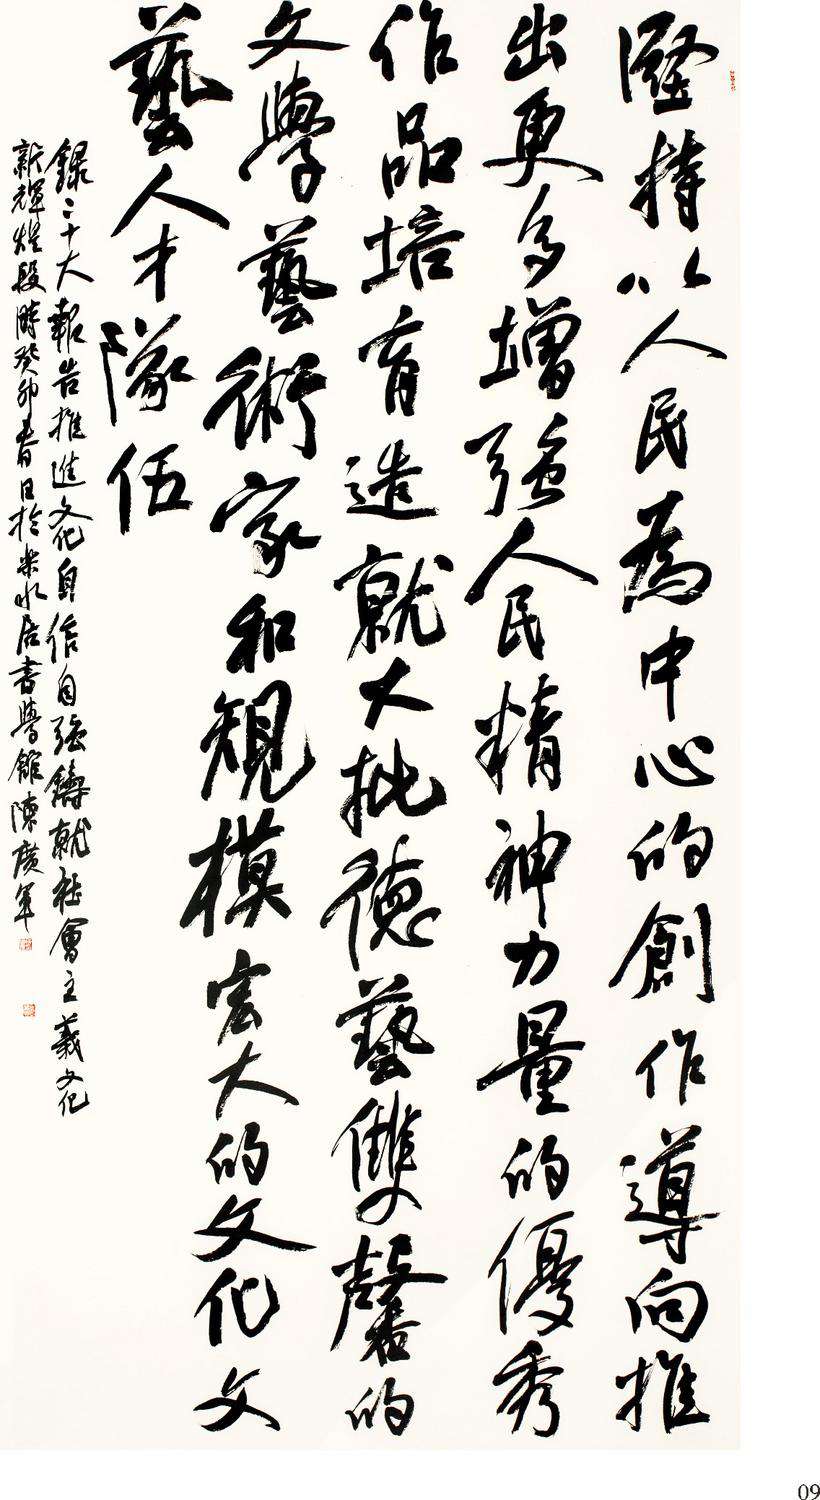 堅持以人民為中心的創作導向推
出更多增強人民精神力量的優秀
作品培育造就大批德藝雙馨的
文學藝術家和規模宏大的文化文
藝人才隊伍
錄二十大報告推進文化自信自強鑄就社會主義文化
新輝煌段時癸卯春日於米水居書學館陳廣軍
09